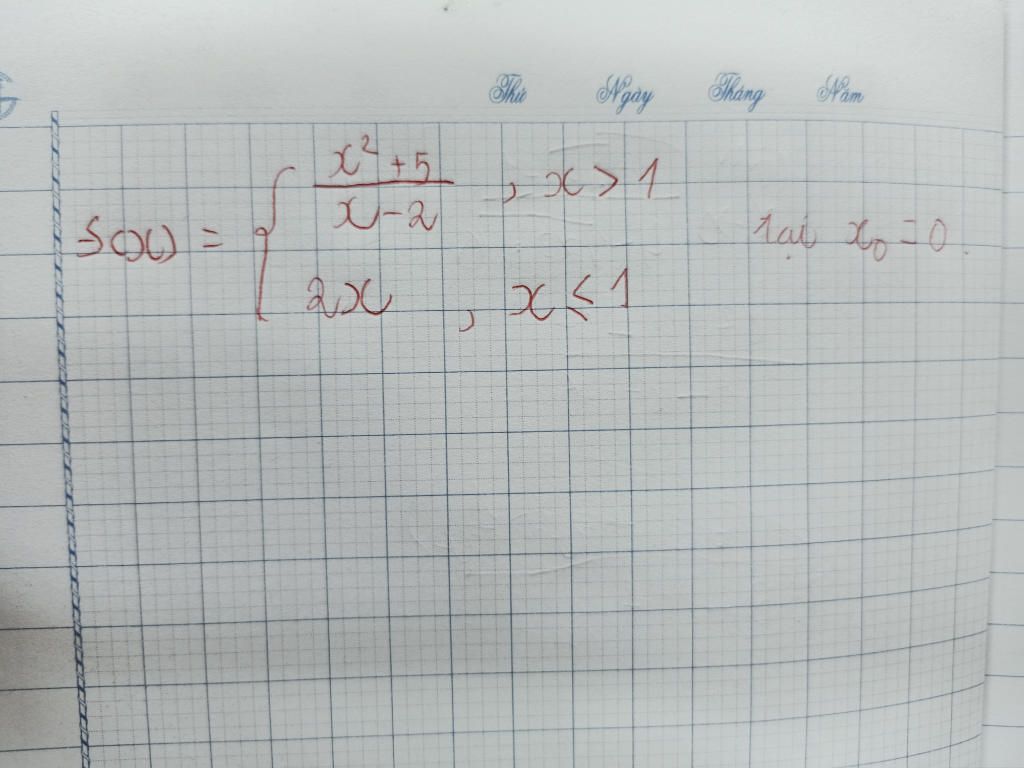 Thứ Ngày Tháng Năm
f(x) = { (x² + 5)/(x - 2) , x > 1
2x , x ≤ 1
tại x₀ = 0.